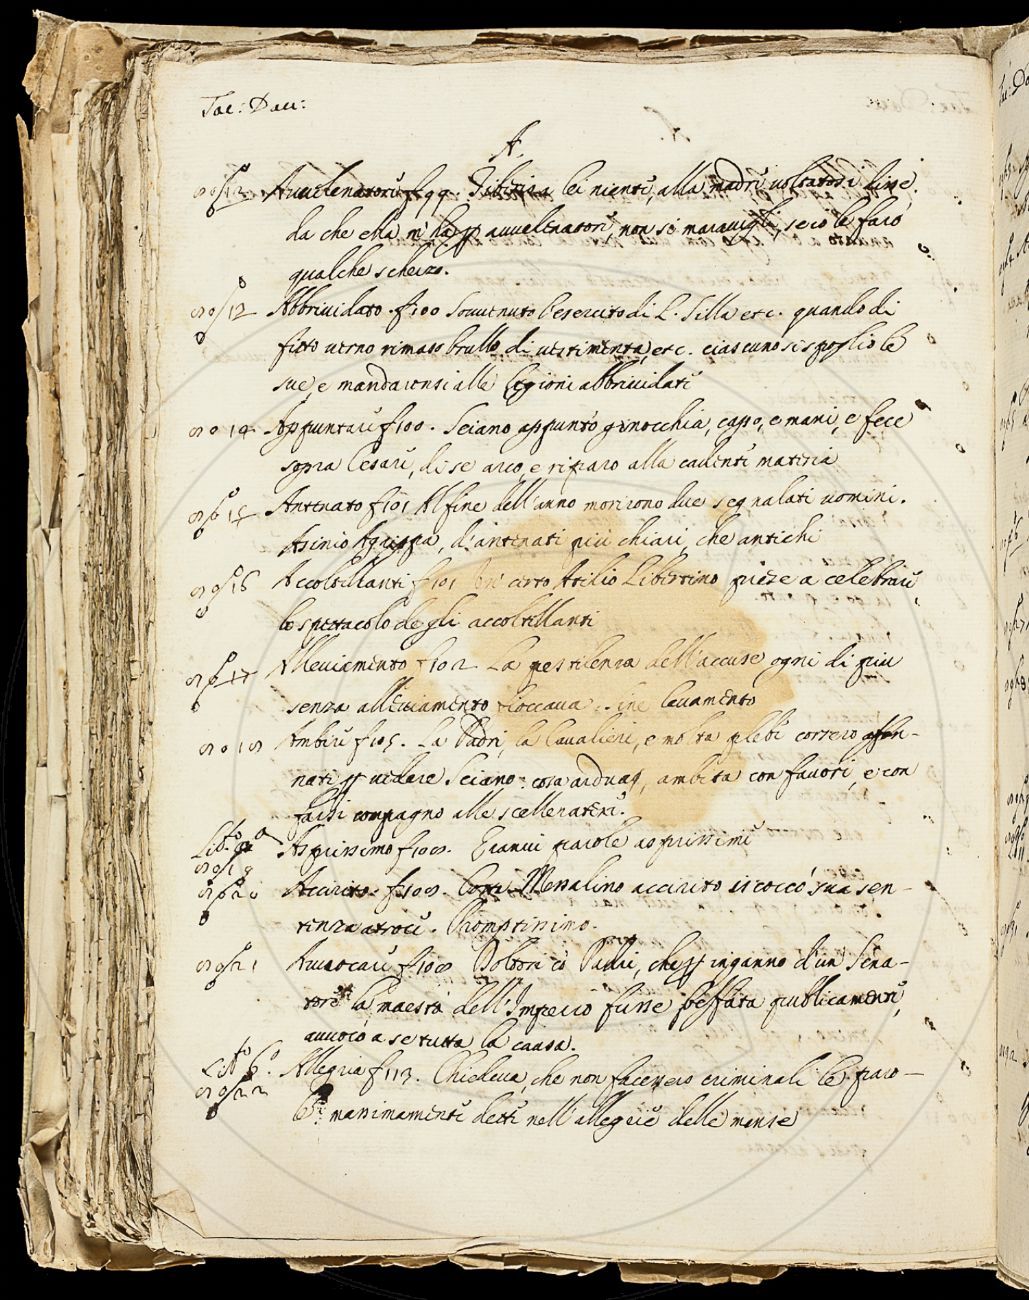 Tac: Dau:
A.
Auuelenatori f 99. Tiberio lei niente, alla madre voltatosi disse,
da che ella m'ha per auuelenatore non si marauigli, se io le farò
qualche scherzo.
12 Abbriuidato f100 Souuenuto l'esercito di L. Silla etc. quando di
fitto uerno rimaso brullo di uestimenta, etc. ciascuno si spogliò le
sue, e mandaronsi alle legioni abbriuidate
14 Appuntare f100. Seiano appuntò ginocchia, capo, e mani, e fece
sopra Cesare, di se arco, e riparo alla cadente materia
15 Antenato f101 Al fine dell'anno morirono due segnalati uomini.
Asinio Agrippa, d'antenati più chiari, che antichi
16 Accoltellanti f101 Un certo Atilio Libertino prese a celebrare
lo spettacolo degli accoltellanti
17 Alleuiamento f102 La pestilenza dell'accuse ogni dì più
senza alleuiamento fioccaua
Ambire f105. La Padri, la Caualieri, e molta plebe correro
nati per uedere Seiano: cosa ardua, ambita con fauori, e con
farsi compagno alle scelleratezze.
Lib.
19 Asprissimo f108. Eranui parole asprissime
20 Acerrito f108. Cotta Messalino acerrito iscoccò sua sen-
tenza atroce. Promptissimo.
21 Auuocare f108 Doltosi co' Padri, che per inganno d'un Sena-
tore la maestà dell'Imperio fusse beffata publicamente,
auuocò a se tutta la causa.
Lib. 6.
22 Allegria f113. Chiedeua, che non facessero criminali le paro-
le massimamente dette nell'allegrie delle mense